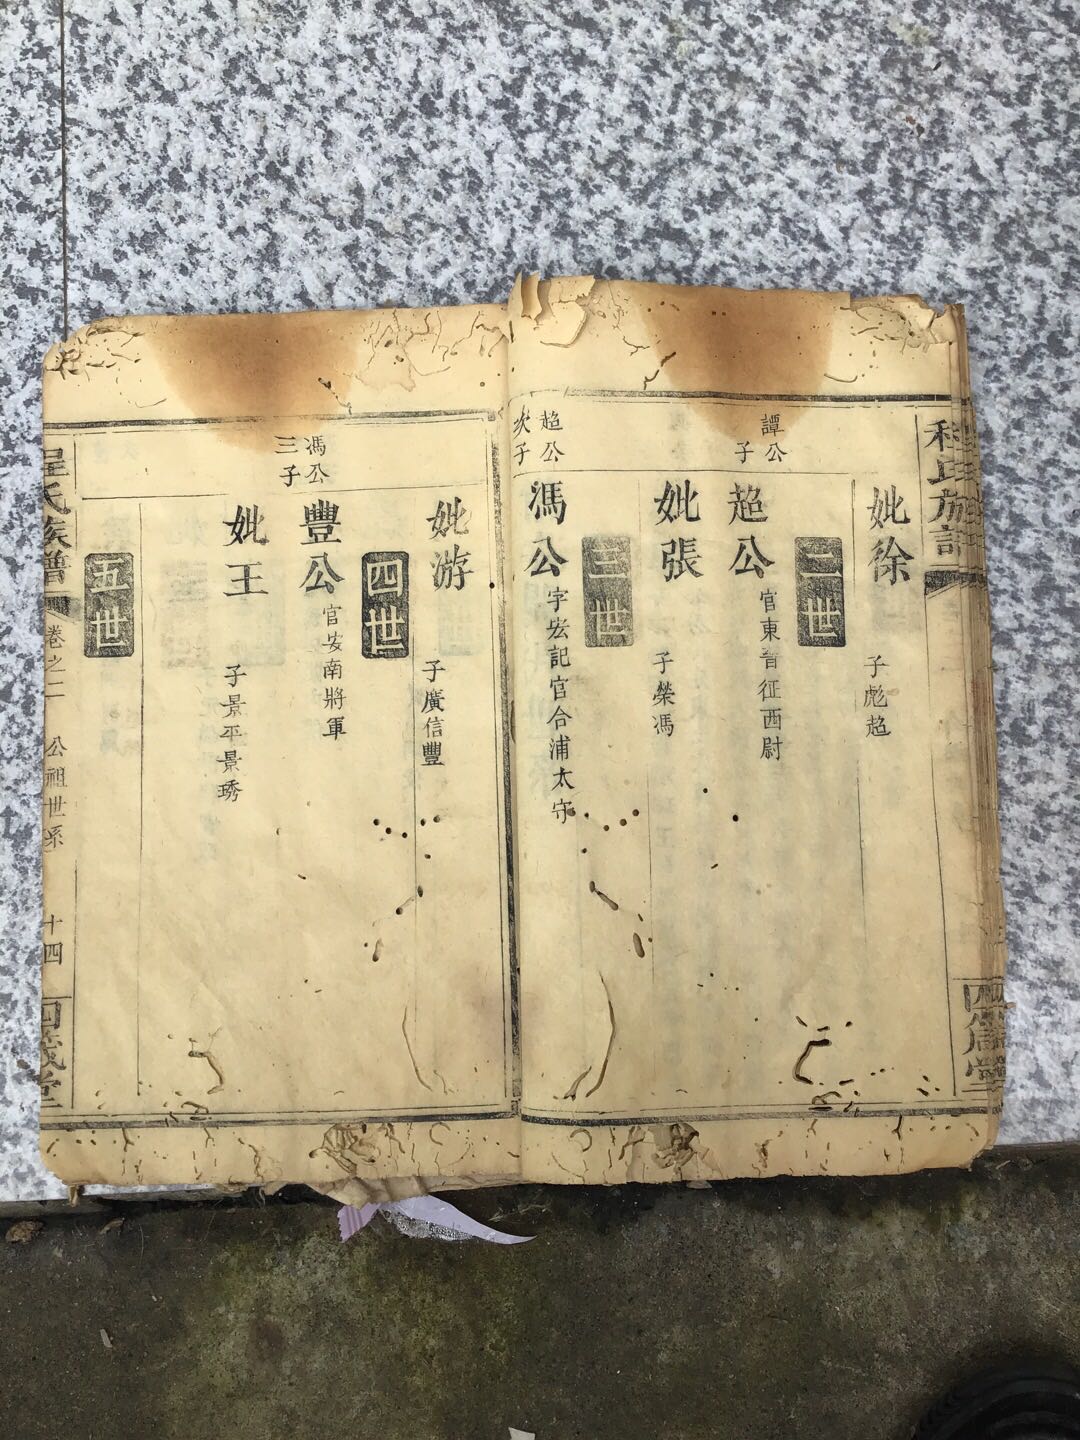 程氏族譜
妣徐 子彪超
二世
譚公子
超公 官東晉征西尉
妣張 子榮馮
三世
超公次子
馮公 字宏記官合浦太守
妣游 子廣信豐
四世
馮公三子
豐公 官安南將軍
妣王 子景平景琇
五世
程氏族譜
卷之二 公祖世系 十四